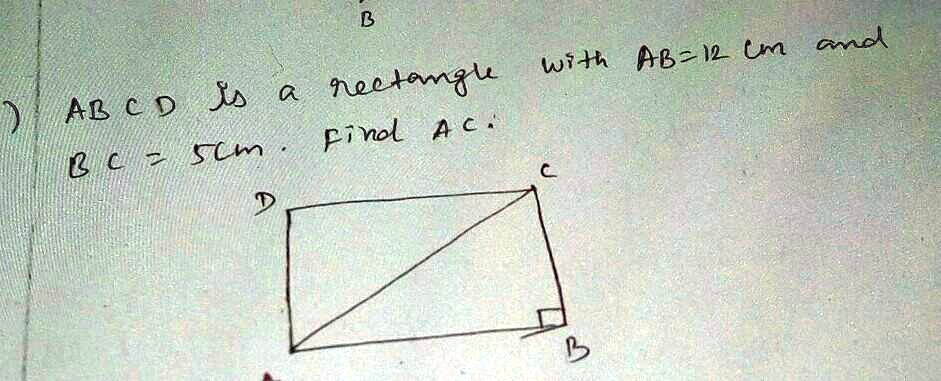 B
) ABCD is a rectangle with AB=12 cm and
BC = 5cm. Find AC.
D
C
B